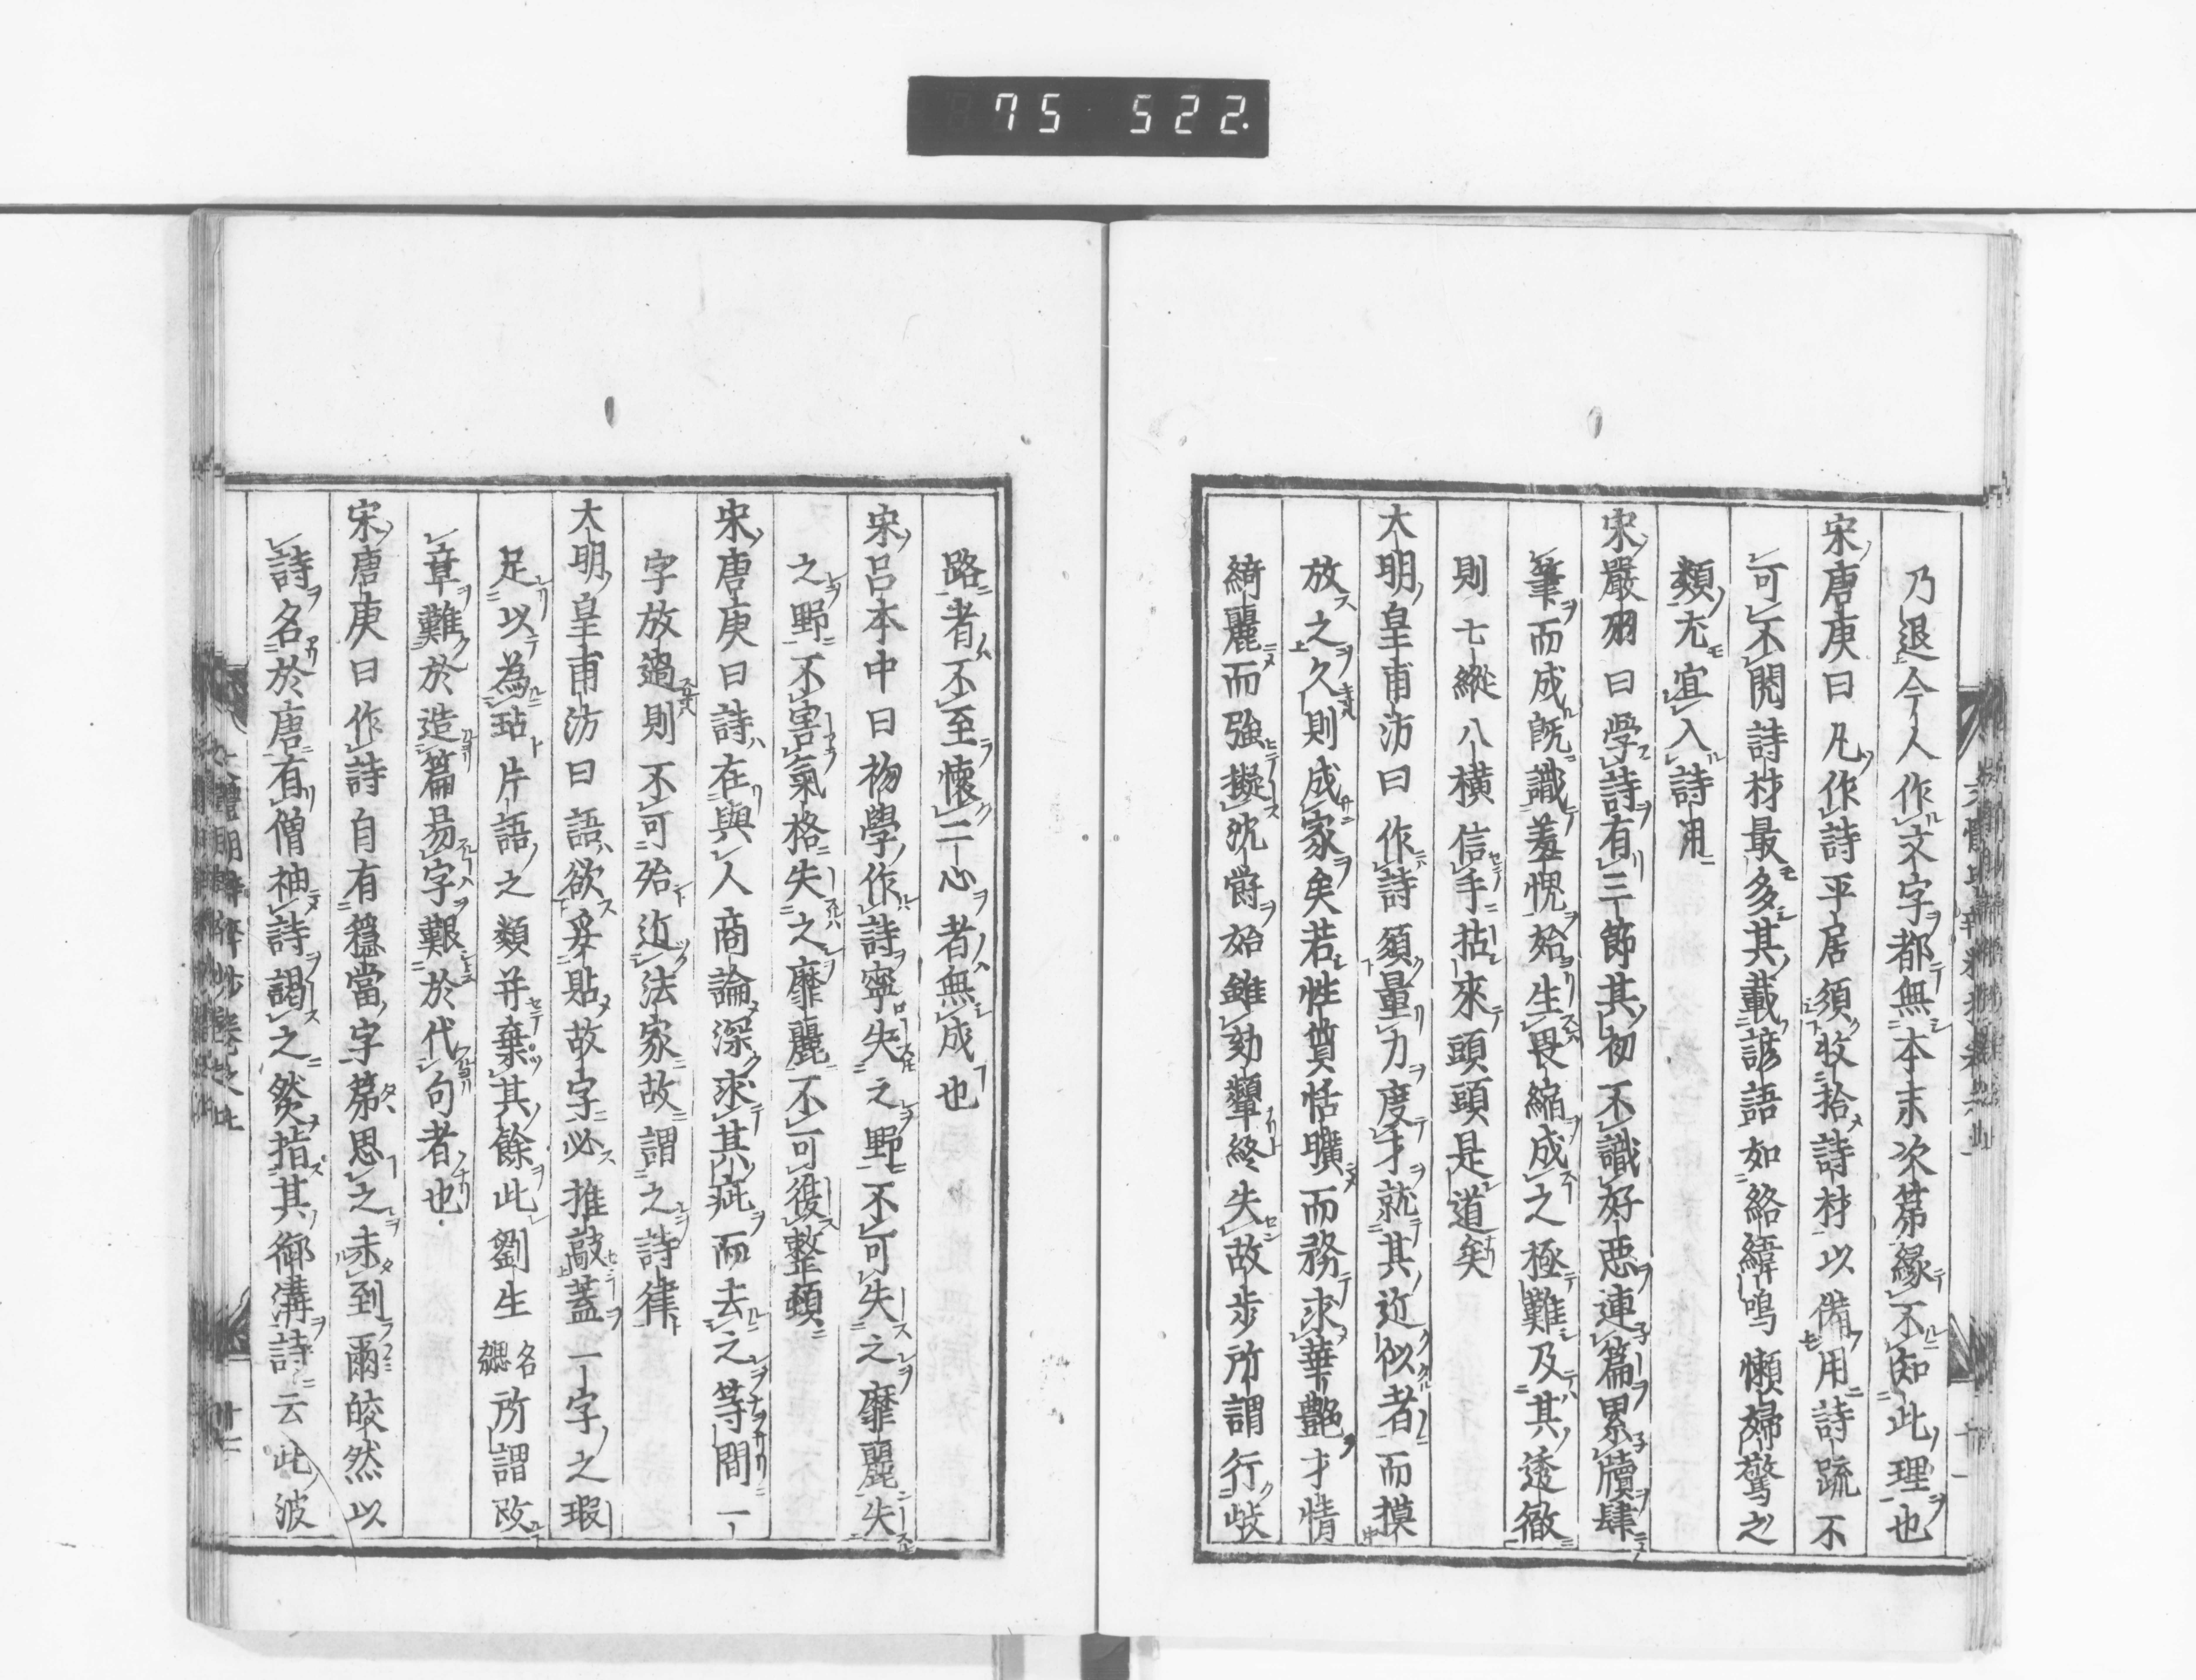 75 522.
乃退今人作文字都無本末次第緣不知此理也
宋唐庚曰凡作詩平居須收拾詩材以備用詩疏不
可不閱詩材最多其載諺語如絡緯鳴懶婦驚之
類尤宜入詩用
宋嚴羽曰學詩有三節其初不識好惡連篇累牘肆
筆而成既識羞愧始生畏縮成之極難及其透徹
則七縱八橫信手拈來頭頭是道矣
大明皇甫汸曰作詩須量力度才就其近似者而摸
放之久則成家矣若性質恬曠而務求華艷才情
綺麗而強擬沈爵始雖効顰終失故步所謂行歧
路者不至懷二心者無成也
宋呂本中曰初學作詩寧失之野不可失之靡麗失
之野不害氣格失之靡麗不可復整頓
宋唐庚曰詩在與人商論深求其疵而去之等間一
字放過則不可殆近法家故謂之詩律
大明皇甫汸曰語欲妥貼故字必推敲蓋一字之瑕
足以為玷片語之類并棄其餘此劉生名勰所謂改
章難於造篇易字艱於代句者也
宋唐庚曰作詩自有穩當字第思之未到爾皎然以
詩名於唐有僧袖詩謁之然指其御溝詩云此波